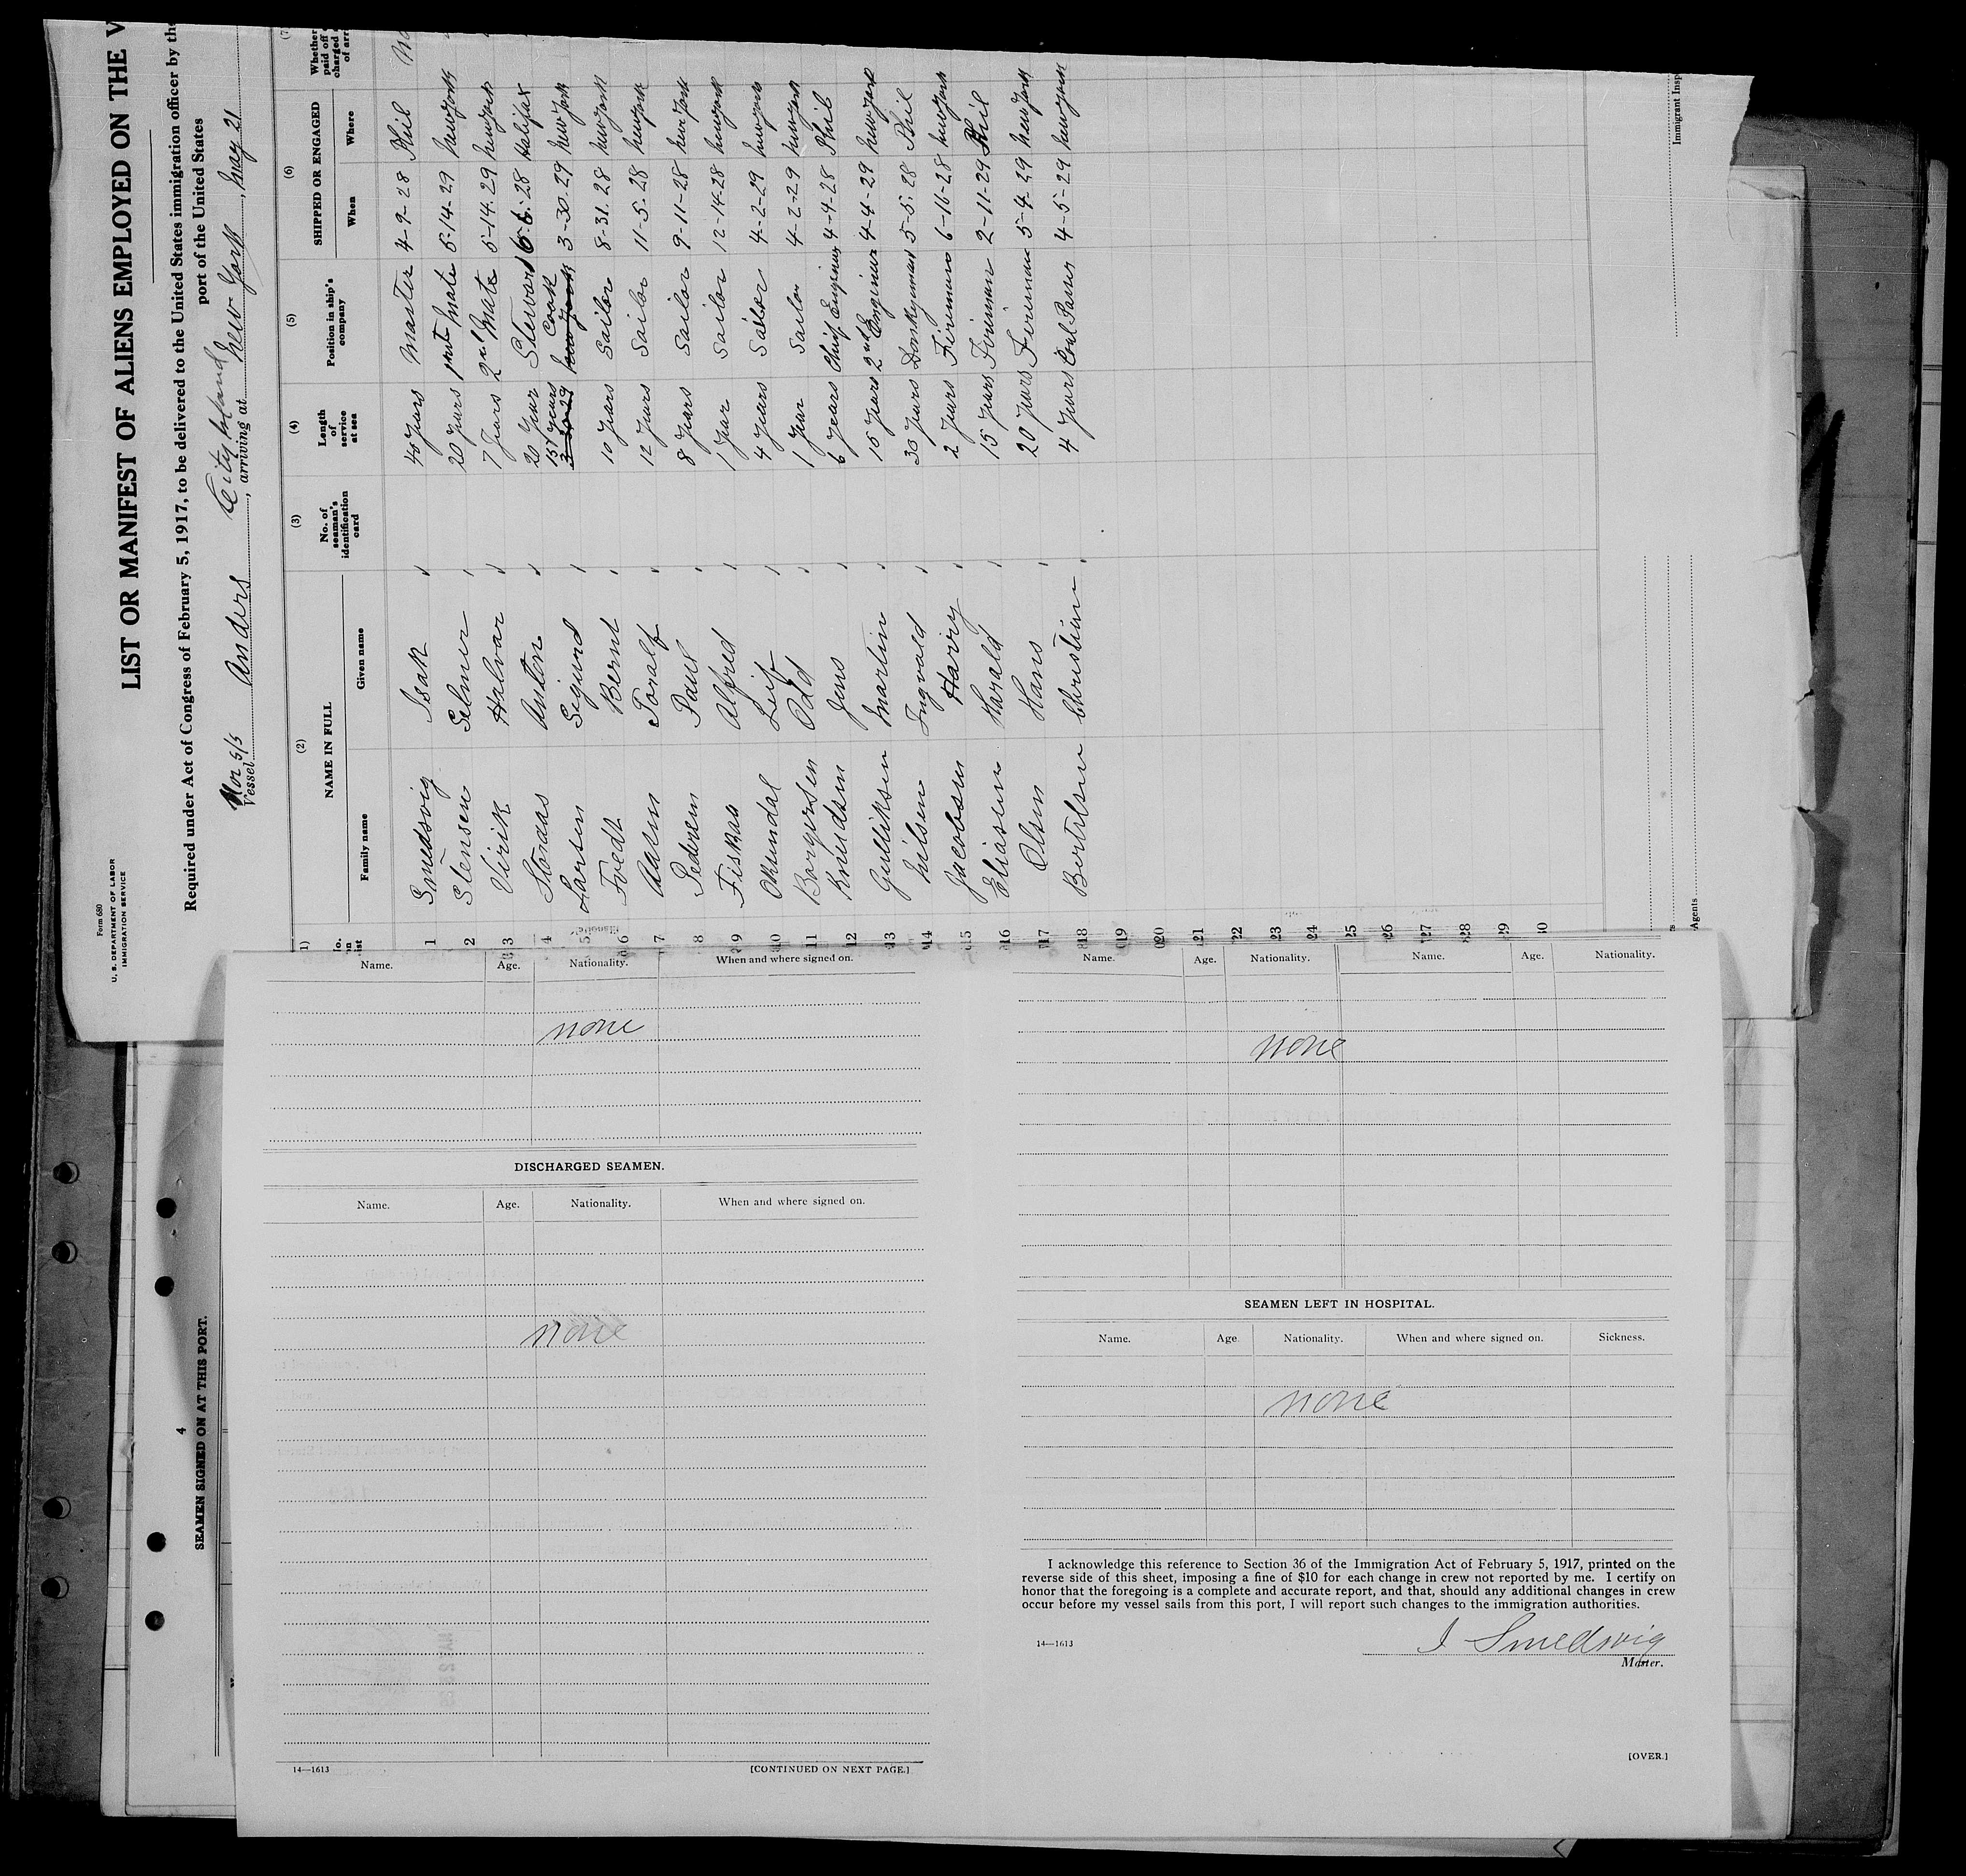 Form 680
U. S. DEPARTMENT OF LABOR
IMMIGRATION SERVICE
LIST OR MANIFEST OF ALIENS EMPLOYED ON THE V
Required under Act of Congress of February 5, 1917, to be delivered to the United States immigration officer by th
port of the United States
Nor S/S
Vessel Andars City Island, arriving at New York, May 21
(2) (3) (4) (5) (6)
NAME IN FULL
Family name Given name
No. of seaman's identification card
Length of service at sea
Position in ship's company
SHIPPED OR ENGAGED
When Where
Whether paid off charged of arr
1 Smedsvig Isak 40 Years Master 4-9-28 Phil No
2 Stensen Selmer 20 Years Mate 5-14-29 New York
3 Virik Halvar 7 Years 2nd Mate 5-14-29 New York
4 Storaas Anton 20 Year Steward 28 Halifax
5 Larsen Sigurd 15 years Cook 3-30-29 New York
6 Tvedt Bernt 10 Years Sailor 8-31-28 New York
7 Aasen Toralf 12 Years Sailor 11-5-28 New York
8 Pedersen Paul 8 Years Sailor 9-11-28 New York
9 Fiskaa Alfred 1 Year Sailor 12-14-28 New York
10 Leif 4 Years Sailor 4-2-29 New York
11 Borgersen Odd 1 Year Sailor 4-2-29 New York
12 Knudsen Jens 6 Years Chief Engineer 4-9-28 Phil
13 Gulliksen Martin 15 Years 2nd Engineer 4-4-29 New York
14 Nilsen Ingvald 30 Years Donkyman 5-5-28 Phil
15 Jacobsen Harry 2 Years Fireman 6-16-28 New York
16 Eliasen Harald 15 Years Fireman 2-11-29 Phil
17 Olsen Hans 20 Years Fireman 5-4-29 New York
18 Bertelsen Christian 4 Years Coal Passer 4-5-29 New York
19
20
21
22
23
24
25
26
27
28
29
30
Immigrant Insp
Agents
4
SEAMEN SIGNED ON AT THIS PORT.
Name. Age. Nationality. When and where signed on.
none
DISCHARGED SEAMEN.
Name. Age. Nationality. When and where signed on.
none
14—1613 [CONTINUED ON NEXT PAGE.]
Name. Age. Nationality. Name. Age. Nationality.
none
SEAMEN LEFT IN HOSPITAL.
Name. Age Nationality. When and where signed on. Sickness.
none
I acknowledge this reference to Section 36 of the Immigration Act of February 5, 1917, printed on the
reverse side of this sheet, imposing a fine of $10 for each change in crew not reported by me. I certify on
honor that the foregoing is a complete and accurate report, and that, should any additional changes in crew
occur before my vessel sails from this port, I will report such changes to the immigration authorities.
14—1613
I Smedsvig
Master.
[OVER.]